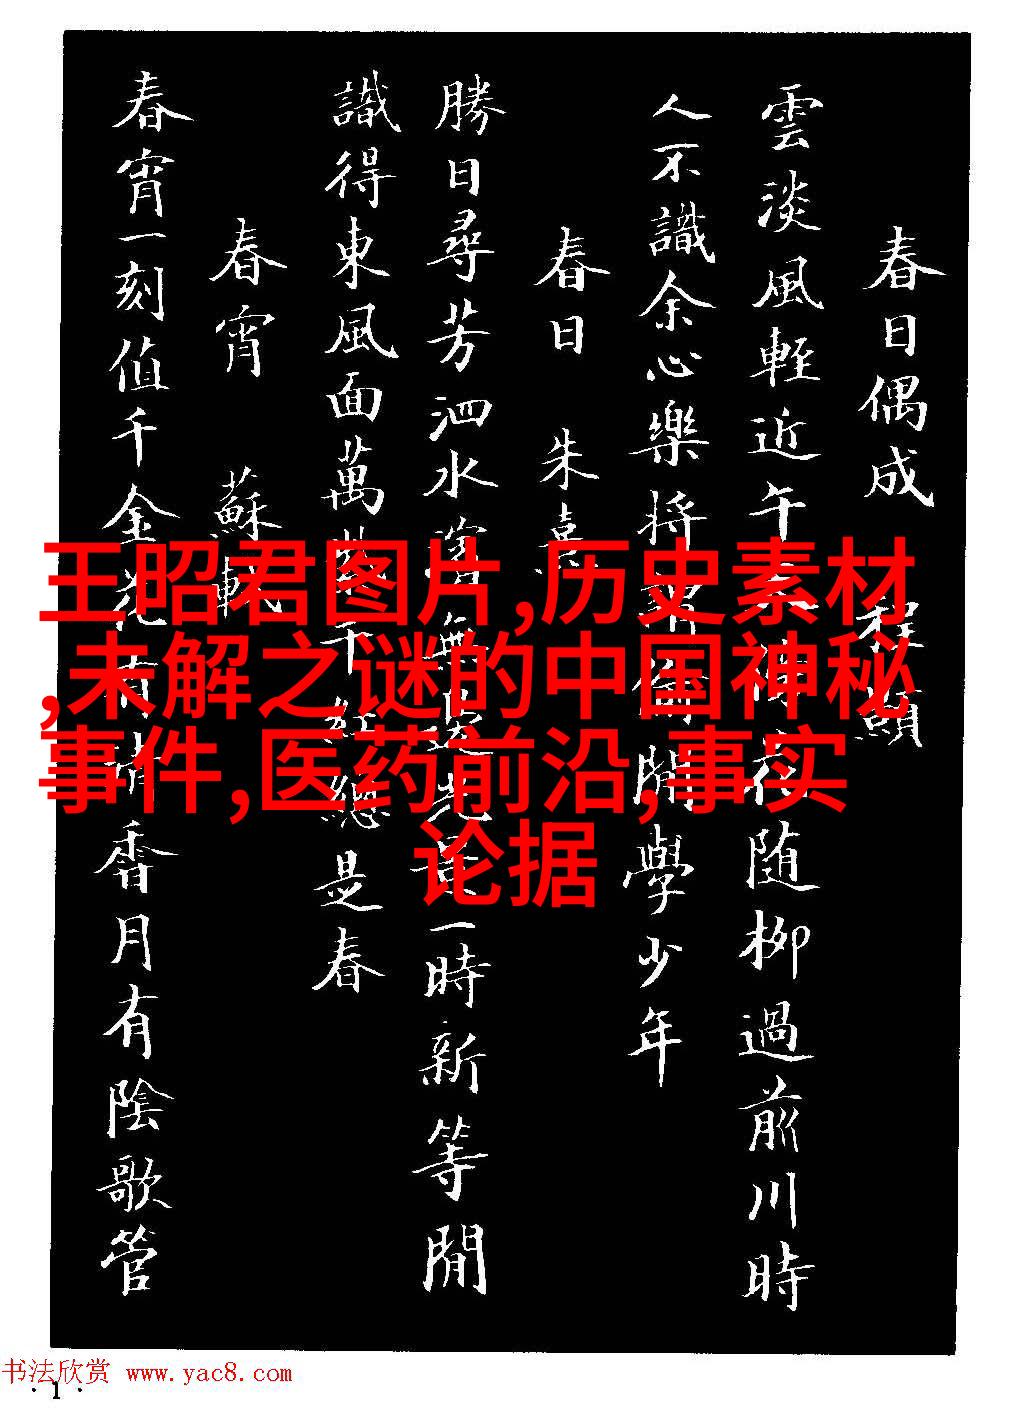 春日偶成 程顥
雲淡風輕近午天傍花随柳過前川時
人不識余心樂将謂偷閒學少年
春日 朱熹
勝日尋芳泗水濱無邊光景一時新等閒
識得東風面萬紫千紅總是春
春宵 蘇軾
春宵一刻值千金花有清香月有陰歌管
王昭君图片,历史素材
,未解之谜的中国神秘
事件,医药前沿,事实
论据
书法欣赏 www.yac8.com
·1·